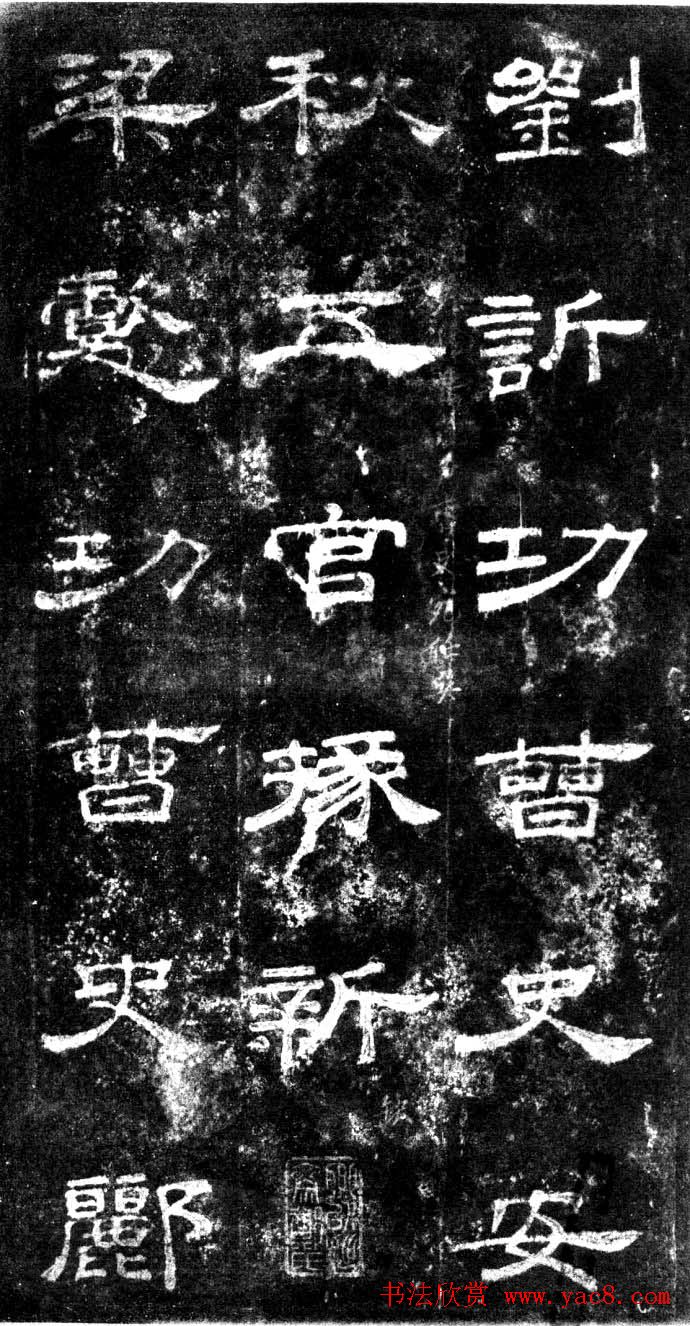 劉訢功曹史安
秋五官掾新
梁懿功曹史酈
书法欣赏 www.yac8.com